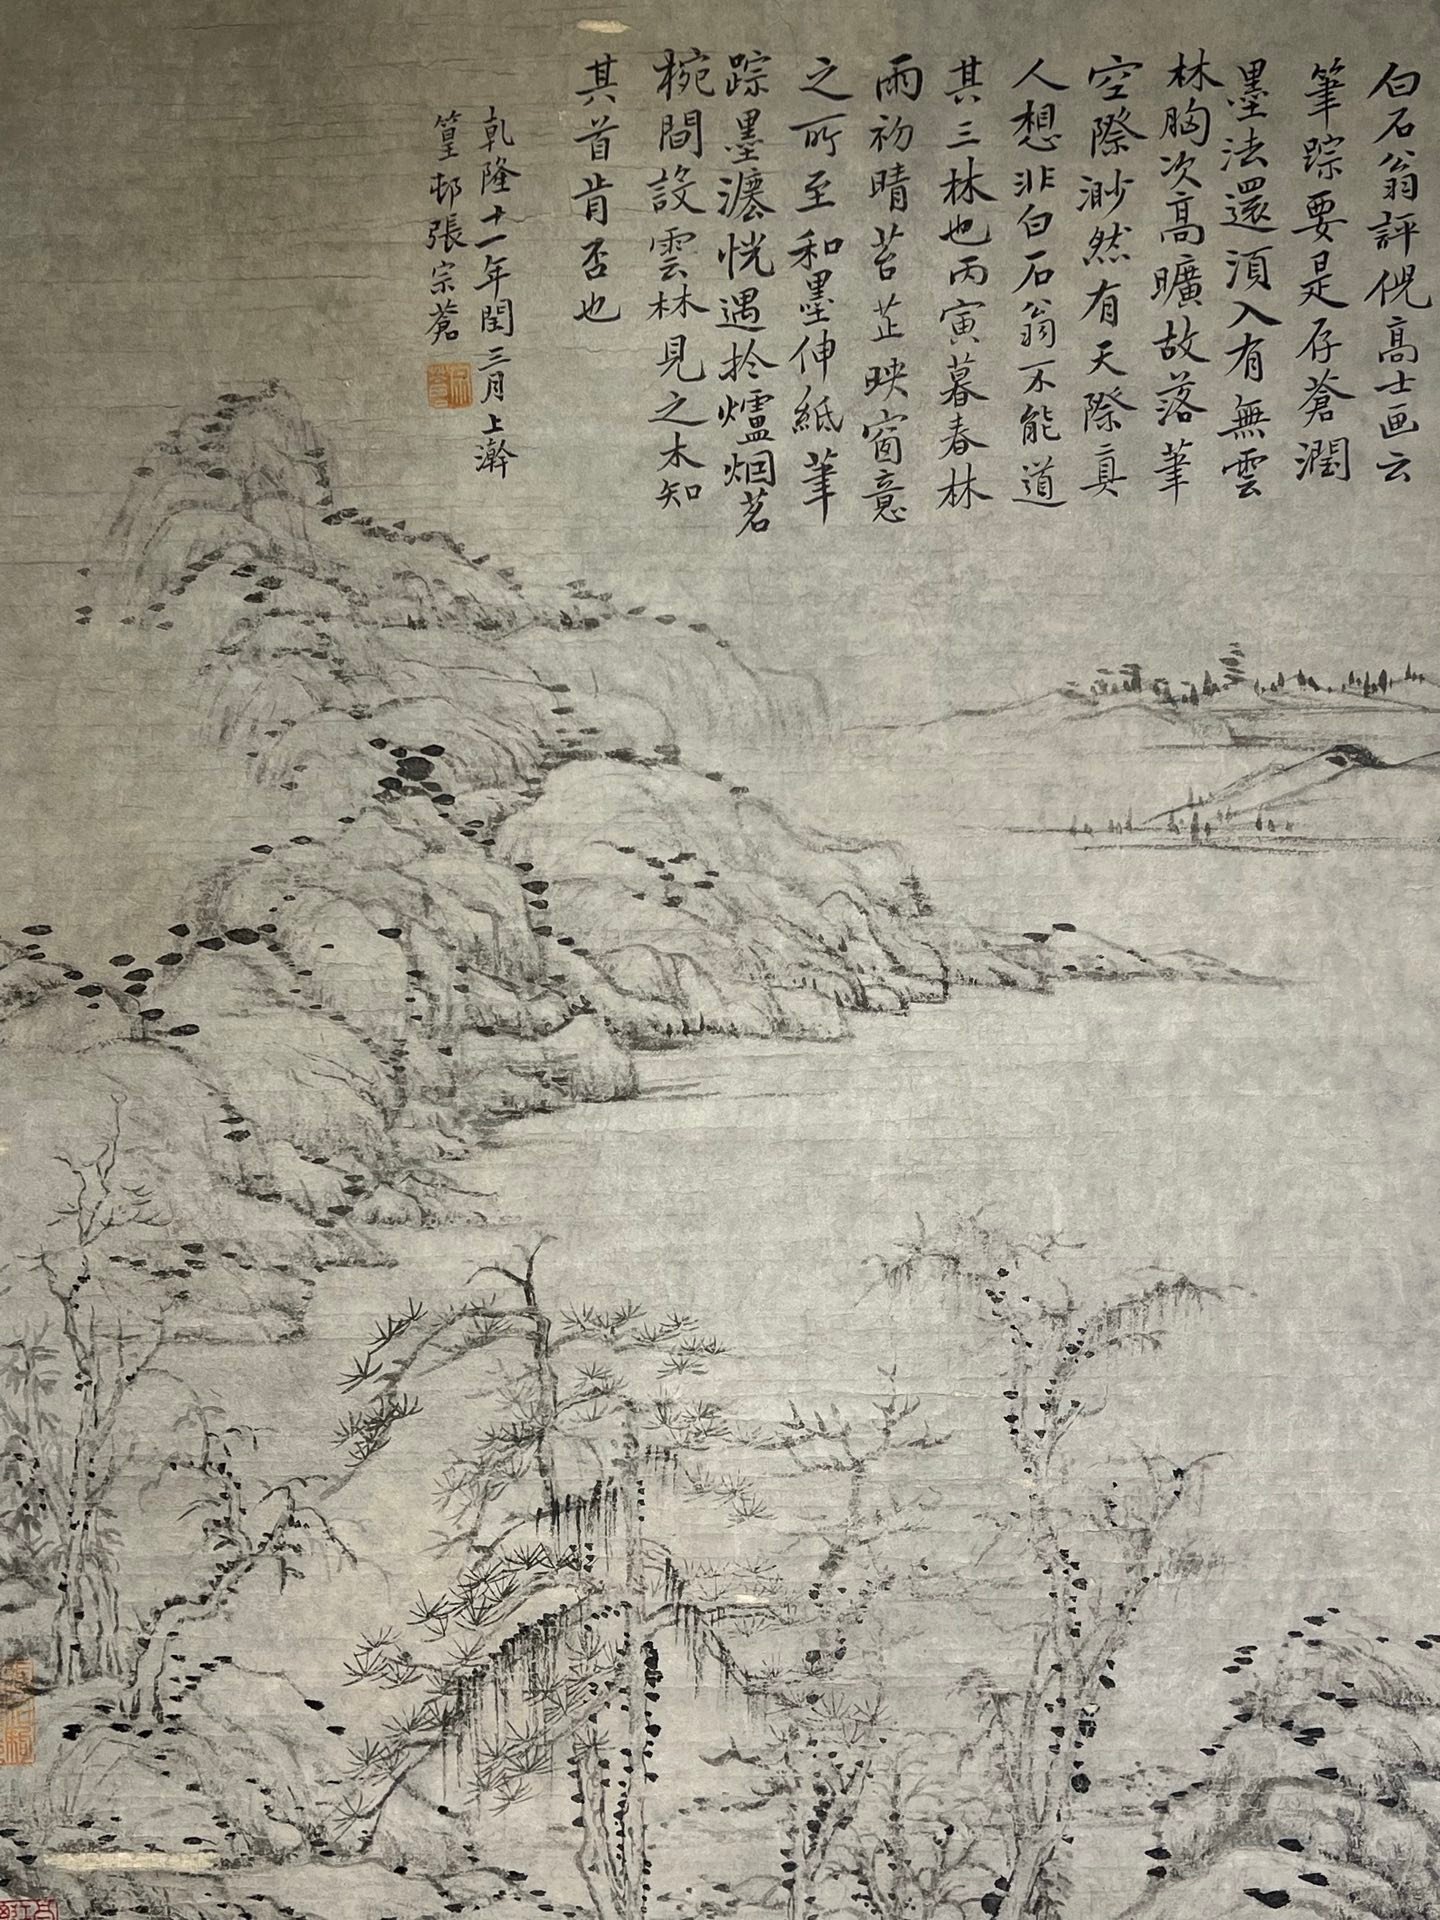 白石翁評倪高士画云
筆踪要是存蒼潤
墨法還須入有無雲
林胸次高曠故落筆
空際渺然有天際真
人想非白石翁不能道
其三昧也丙寅暮春林
雨初晴苔芷映窗意
之所至和墨伸紙筆
踪墨瀋恍遇扵爐烟茗
椀間設雲林見之未知
其首肯否也
乾隆十一年閏三月上澣
篁邨張宗蒼